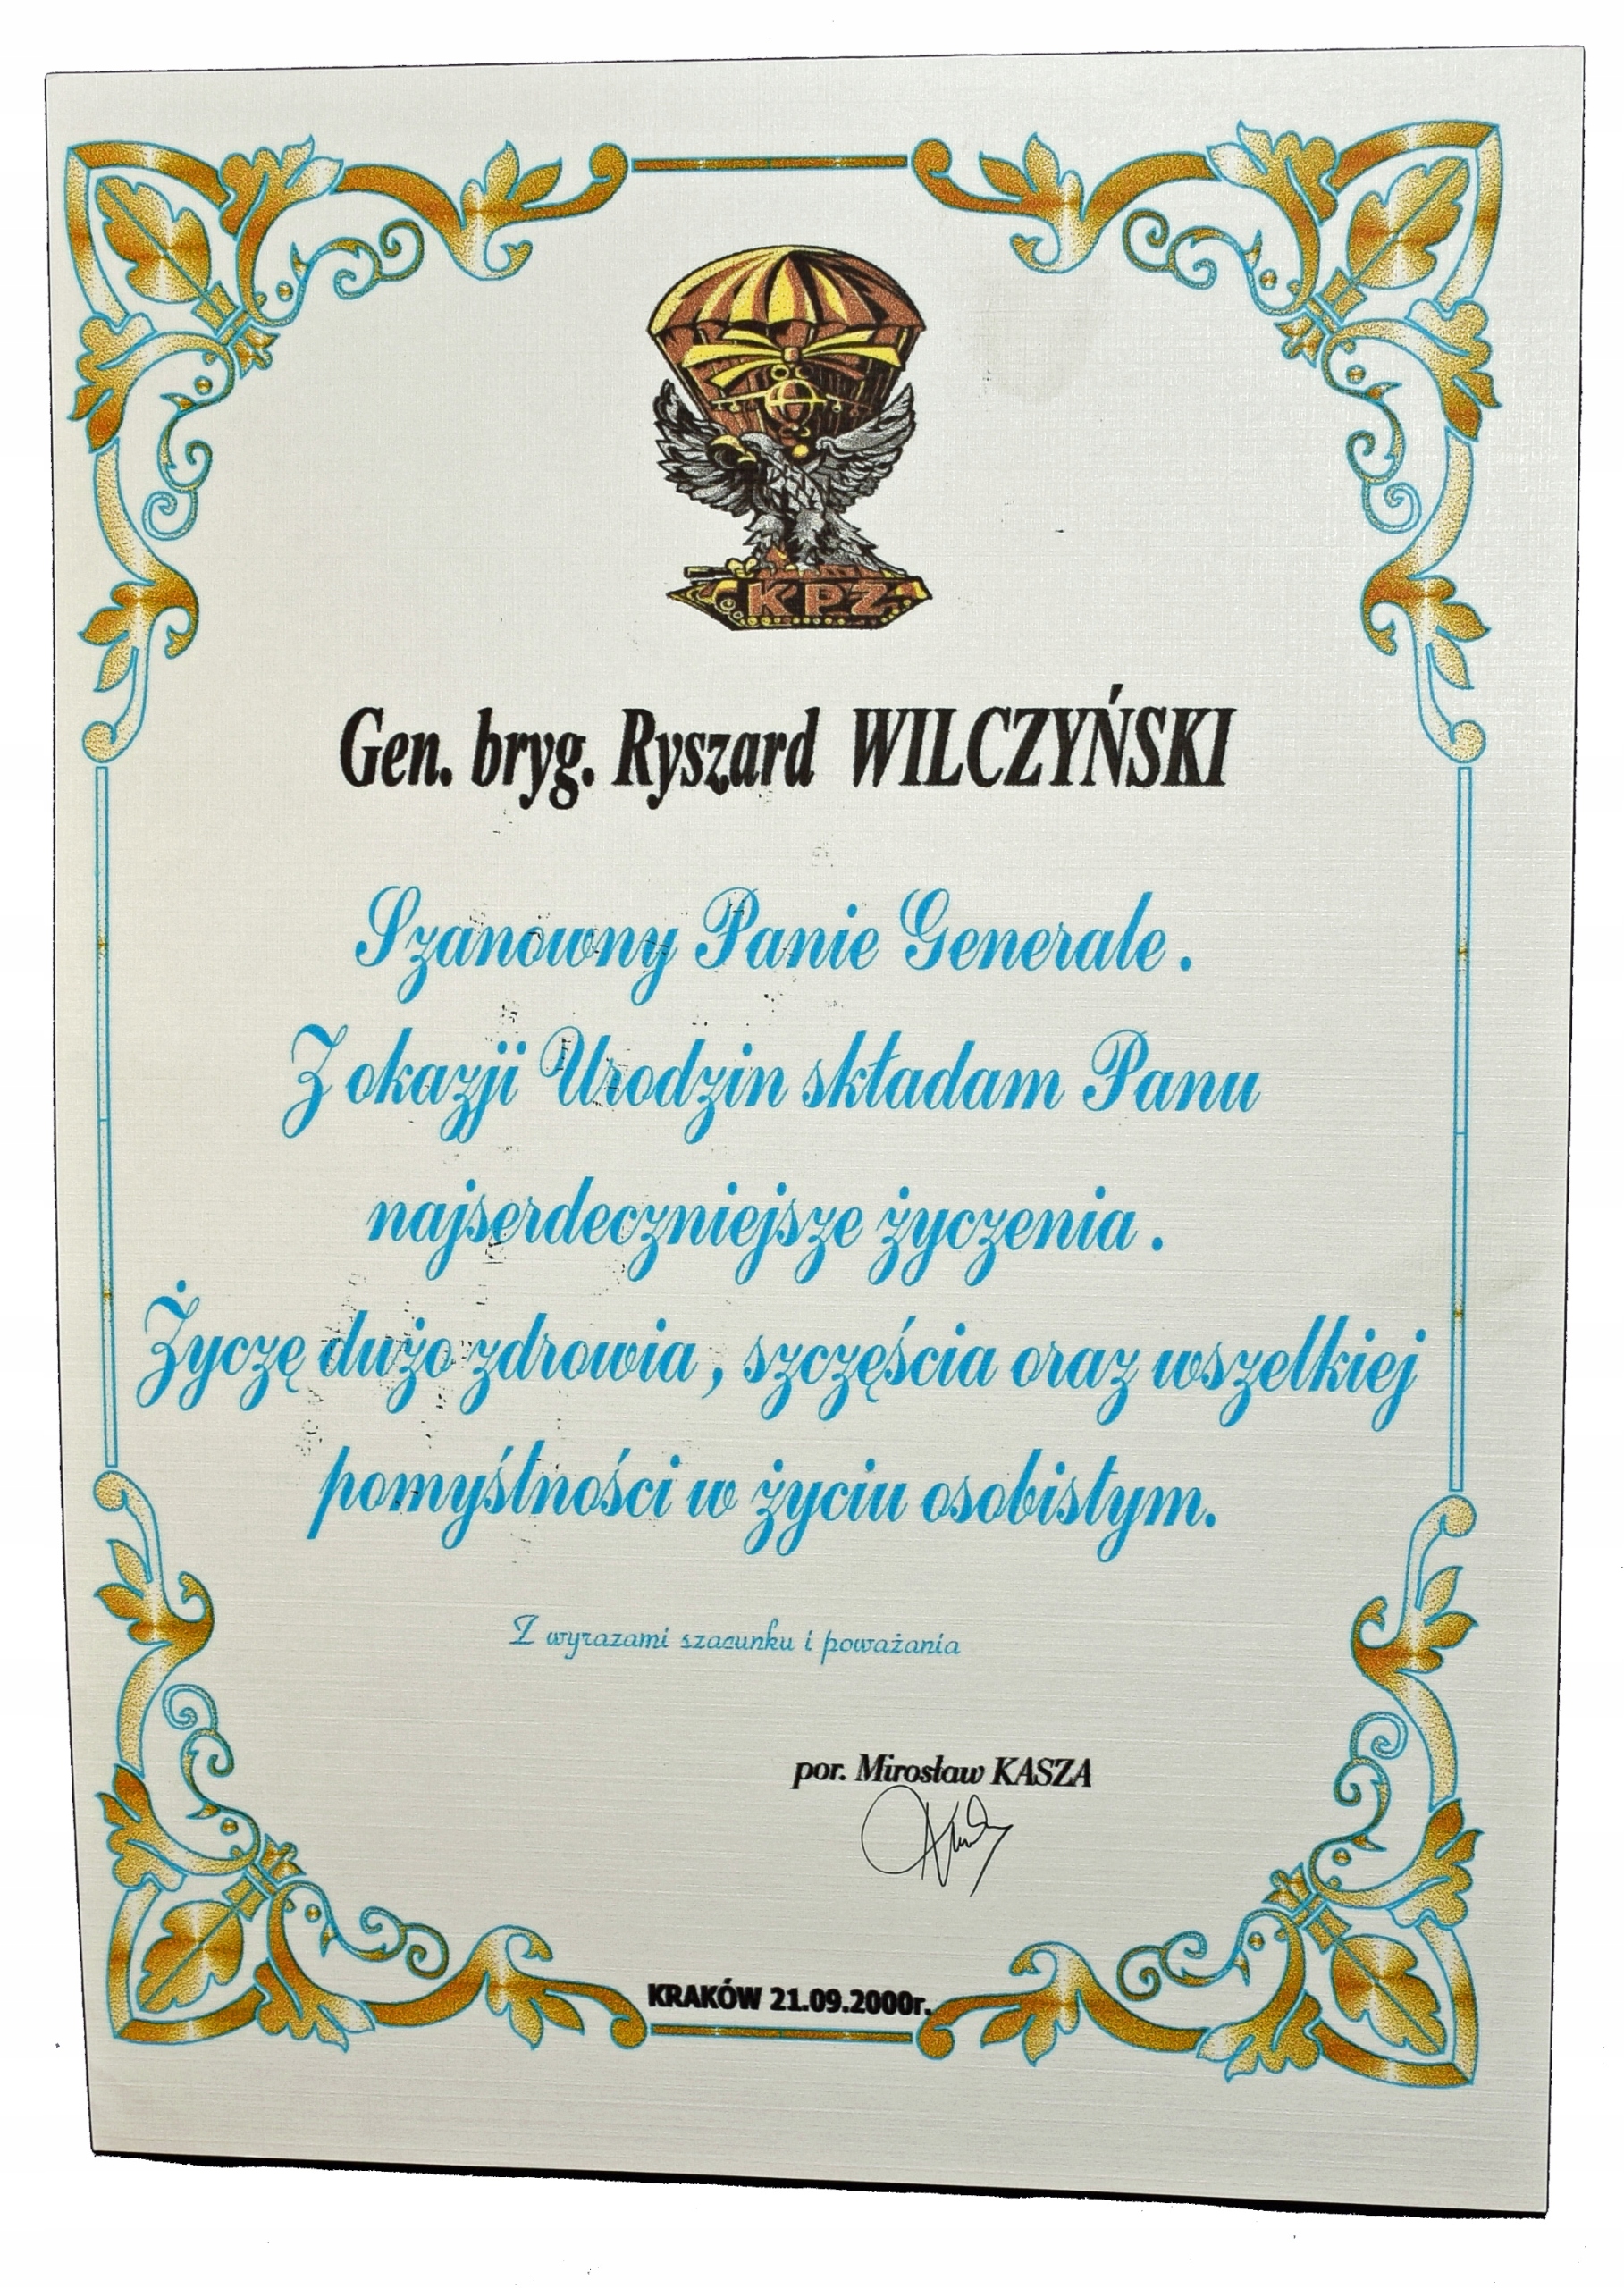 KPZ
Gen. bryg. Ryszard WILCZYŃSKI
Szanowny Panie Generale.
Z okazji Urodzin składam Panu
najserdeczniejsze życzenia.
Życzę dużo zdrowia, szczęścia oraz wszelkiej
pomyślności w życiu osobistym.
Z wyrazami szacunku i poważania
por. Mirosław KASZA
KRAKÓW 21.09.2000r.